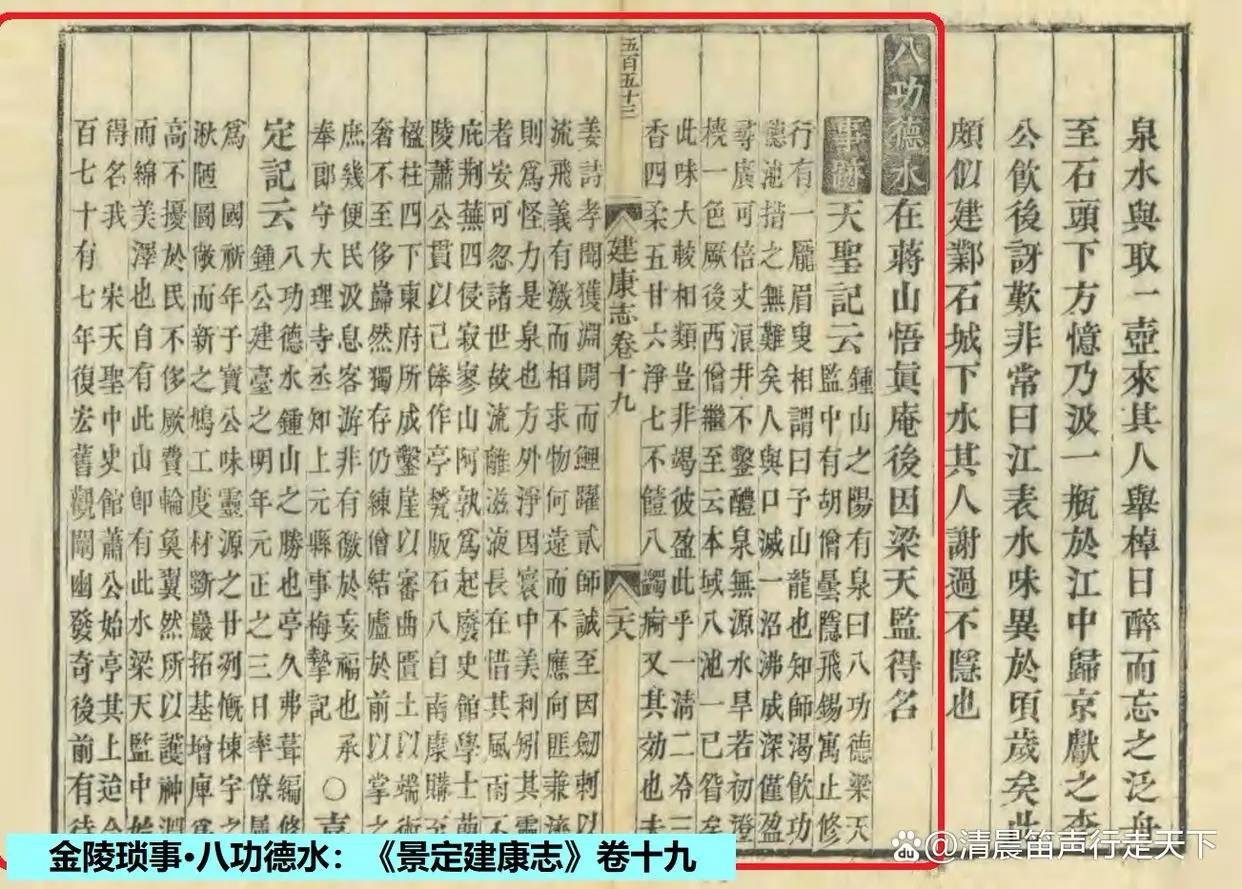 泉水與取一壺來其人舉棹日醉而忘之泛舟
至石頭下方憶乃汲一瓶於江中歸京獻之李
公飲後訝歎非常曰江表水味異於頃歲矣此
頗似建鄴石城下水其人謝過不隱也
八功德水在蔣山悟眞庵後因梁天監得名
事跡天聖記云鍾山之陽有泉曰八功德梁天
監中有胡僧曇隱飛錫寓止修
行有一厖眉叟相謂曰予山龍也知師渴飲功
德池措之無難矣人與口滅一沼沸成深僅盈
尋廣可倍丈浪井不鑿醴泉無源水旱若初澄
撓一色厥後西僧繼至云本域八池一已眢矣
此味大較相類豈非竭彼盈此乎一清二冷三
香四柔五甘六淨七不饐八蠲痾又其効也未
五百五十三
建康志卷十九
姜詩孝聞獲淵開而鯉躍貳師誠至因劒刺以
流飛義有激而相求物何遠而不應向匪兼濟
則爲怪力是泉也方外淨因寰中美利矧其靈
者安可忽諸世故流離滋液長在惜其風雨不
庇荆蕪四侵寂寥山阿孰爲起廢史館學士蘭
陵蕭公貫以己俸作亭甃版石八自南康購至
楹柱四下東府所成鑿崖以審曲匱土以端術
奢不至侈巋然獨存仍練僧結廬於前以掌之
庶幾便民汲息客游非有徼於妄福也承
奉郎守大理寺丞知上元縣事梅摯記
○嘉
定記云八功德水鍾山之勝也亭久弗葺編修
鍾公建臺之明年元正之三日率僚屬
爲國祈年于寶公味靈源之甘冽慨棟宇之
湫陋圖敞而新之鳩工度材斷巖拓基增庳爲
高不擾於民不侈厥費輪奐翼然所以護神淵
而綿美澤也自有此山卽有此水梁天監中始
得名我宋天聖中史館蕭公始亭其上迨今
百七十有七年復宏舊觀闡幽發奇後前有待
金陵琐事·八功德水：《景定建康志》卷十九
Bai du @清晨笛声行走天下